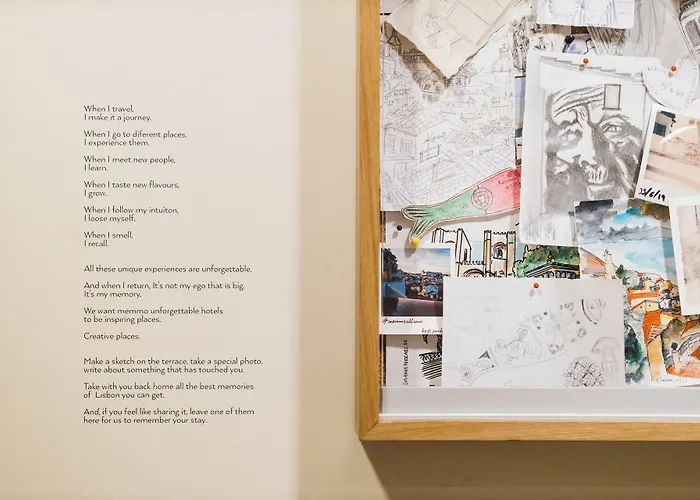 When I travel,
I make it a journey.
When I go to diferent places,
I experience them.
When I meet new people,
I learn.
When I taste new flavours,
I grow.
When I follow my intuiton,
I loose myself.
When I smell,
I recall.
All these unique experiences are unforgettable.
And when I return, It's not my ego that is big.
It's my memory.
We want memmo unforgettable hotels
to be inspiring places.
Creative places.
Make a sketch on the terrace, take a special photo,
write about something that has touched you.
Take with you back home all the best memories
of Lisbon you can get.
And, if you feel like sharing it, leave one of them
here for us to remember your stay.